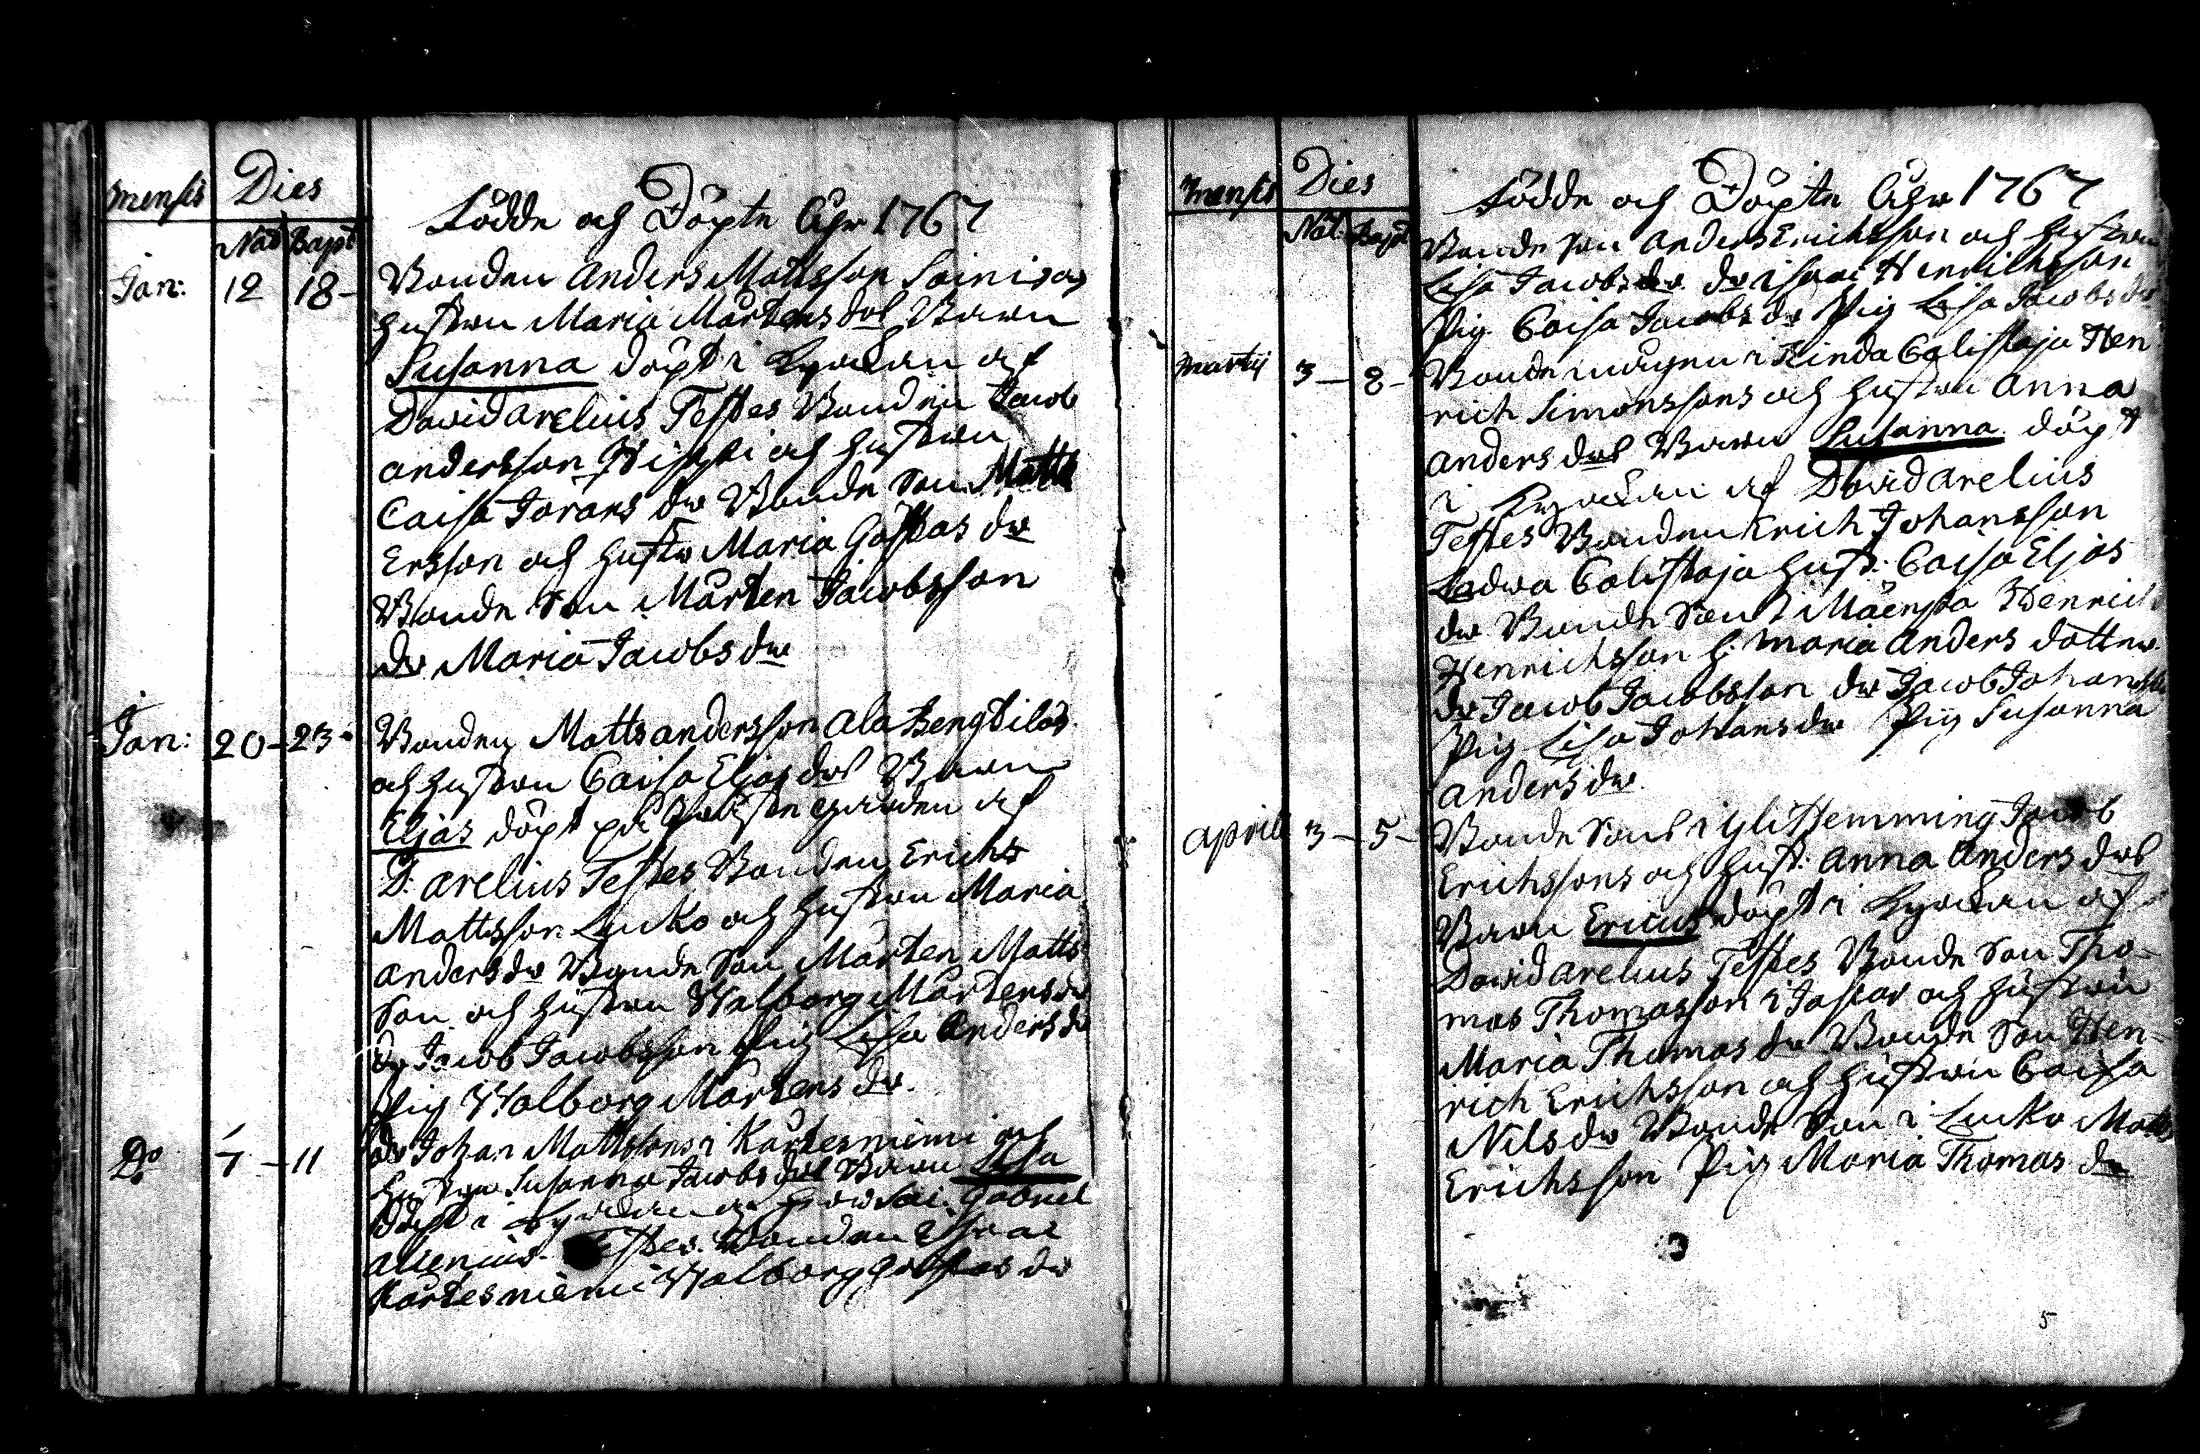 Mensis Dies
Födde och Döpte Åhr 1767
Nat Bapt
Jan: 12 18 – Bonden Anders Mattsson Sainio och
Hustrun Maria Mårtens dotr Barn
Susanna döpt i Kyrckan af
David Arelius Testes Bonden Jacob
Andersson Hirfvi och Hustrun
Caisa Jörans dr Bonde Son Matts
Ersson och Hustr Maria Gustas dr
Bonde Son Mårten Jacobsson
dr Maria Jacobs dr
Jan: 20 – 23 – Bonden Matts Andersson Ala Bengtilä
och Hustrun Caisa Elias dotr Barn
Eljas döpt på Prästegården af
D. Arelius Testes Bonden Erich
Mattsson Lucko och Hustrun Maria
Anders dr Bonde Son Mårten Matts
Son och Hustrun Walborg Mårtens dr
dr Jacob Jacobsson Pig Lisa Anders dr
Pig Walborg Mårtens dr.
Do 7 – 11 dr Johan Mattssons i Kärtesniemi och
Hustrun Susanna Jacobs dotr Barn Lisa
Döpt i Kyrckan af Gabriel
Allenius. Testes. Bonden Isaac
Kärtesniemi Walborg Gustas dr
Mensis Dies
Födde och Döpte Åhr 1767
Nat: Bapt
Bonde Son Anders Erichsson och Hustrun
Lisa Jacobs dr. dr Isaac Henrichsson
Pig Caisa Jacobs dr Pig Lisa Jacobs dr
Martij 3 – 8 – Bondemågen i Kinda Calistaja Hen
rich Simonssons och Hustrun Anna
Anders dotr Barn Susanna döpt
i Kyrckan af David Arelius
Testes Bonden Erich Johansson
Ladwa Calistaja Hust: Caisa Eljas
dr Bonde Son i Mäenpä Henrich
Henrichsson h: Maria Anders dotter
dr Jacob Jacobsson dr Jacob Johansson
Pig Lisa Johans dr Pig Susanna
Anders dr.
April 3 – 5 – Bonde Sons i Yli Hemming Jacob
Erichssons och Hust: Anna Anders dotr
Barn Ericus döpt i Kyrckan af
David Arelius Testes Bonde Son Tho-
mas Thomasson i och Hustrun
Maria Thomas dr Bonde Son Hen-
rich Erichsson och Hustrun Caisa
Nils dr Bonde Son i Lucko Matts
Erichsson Pig Maria Thomas dr
3
5